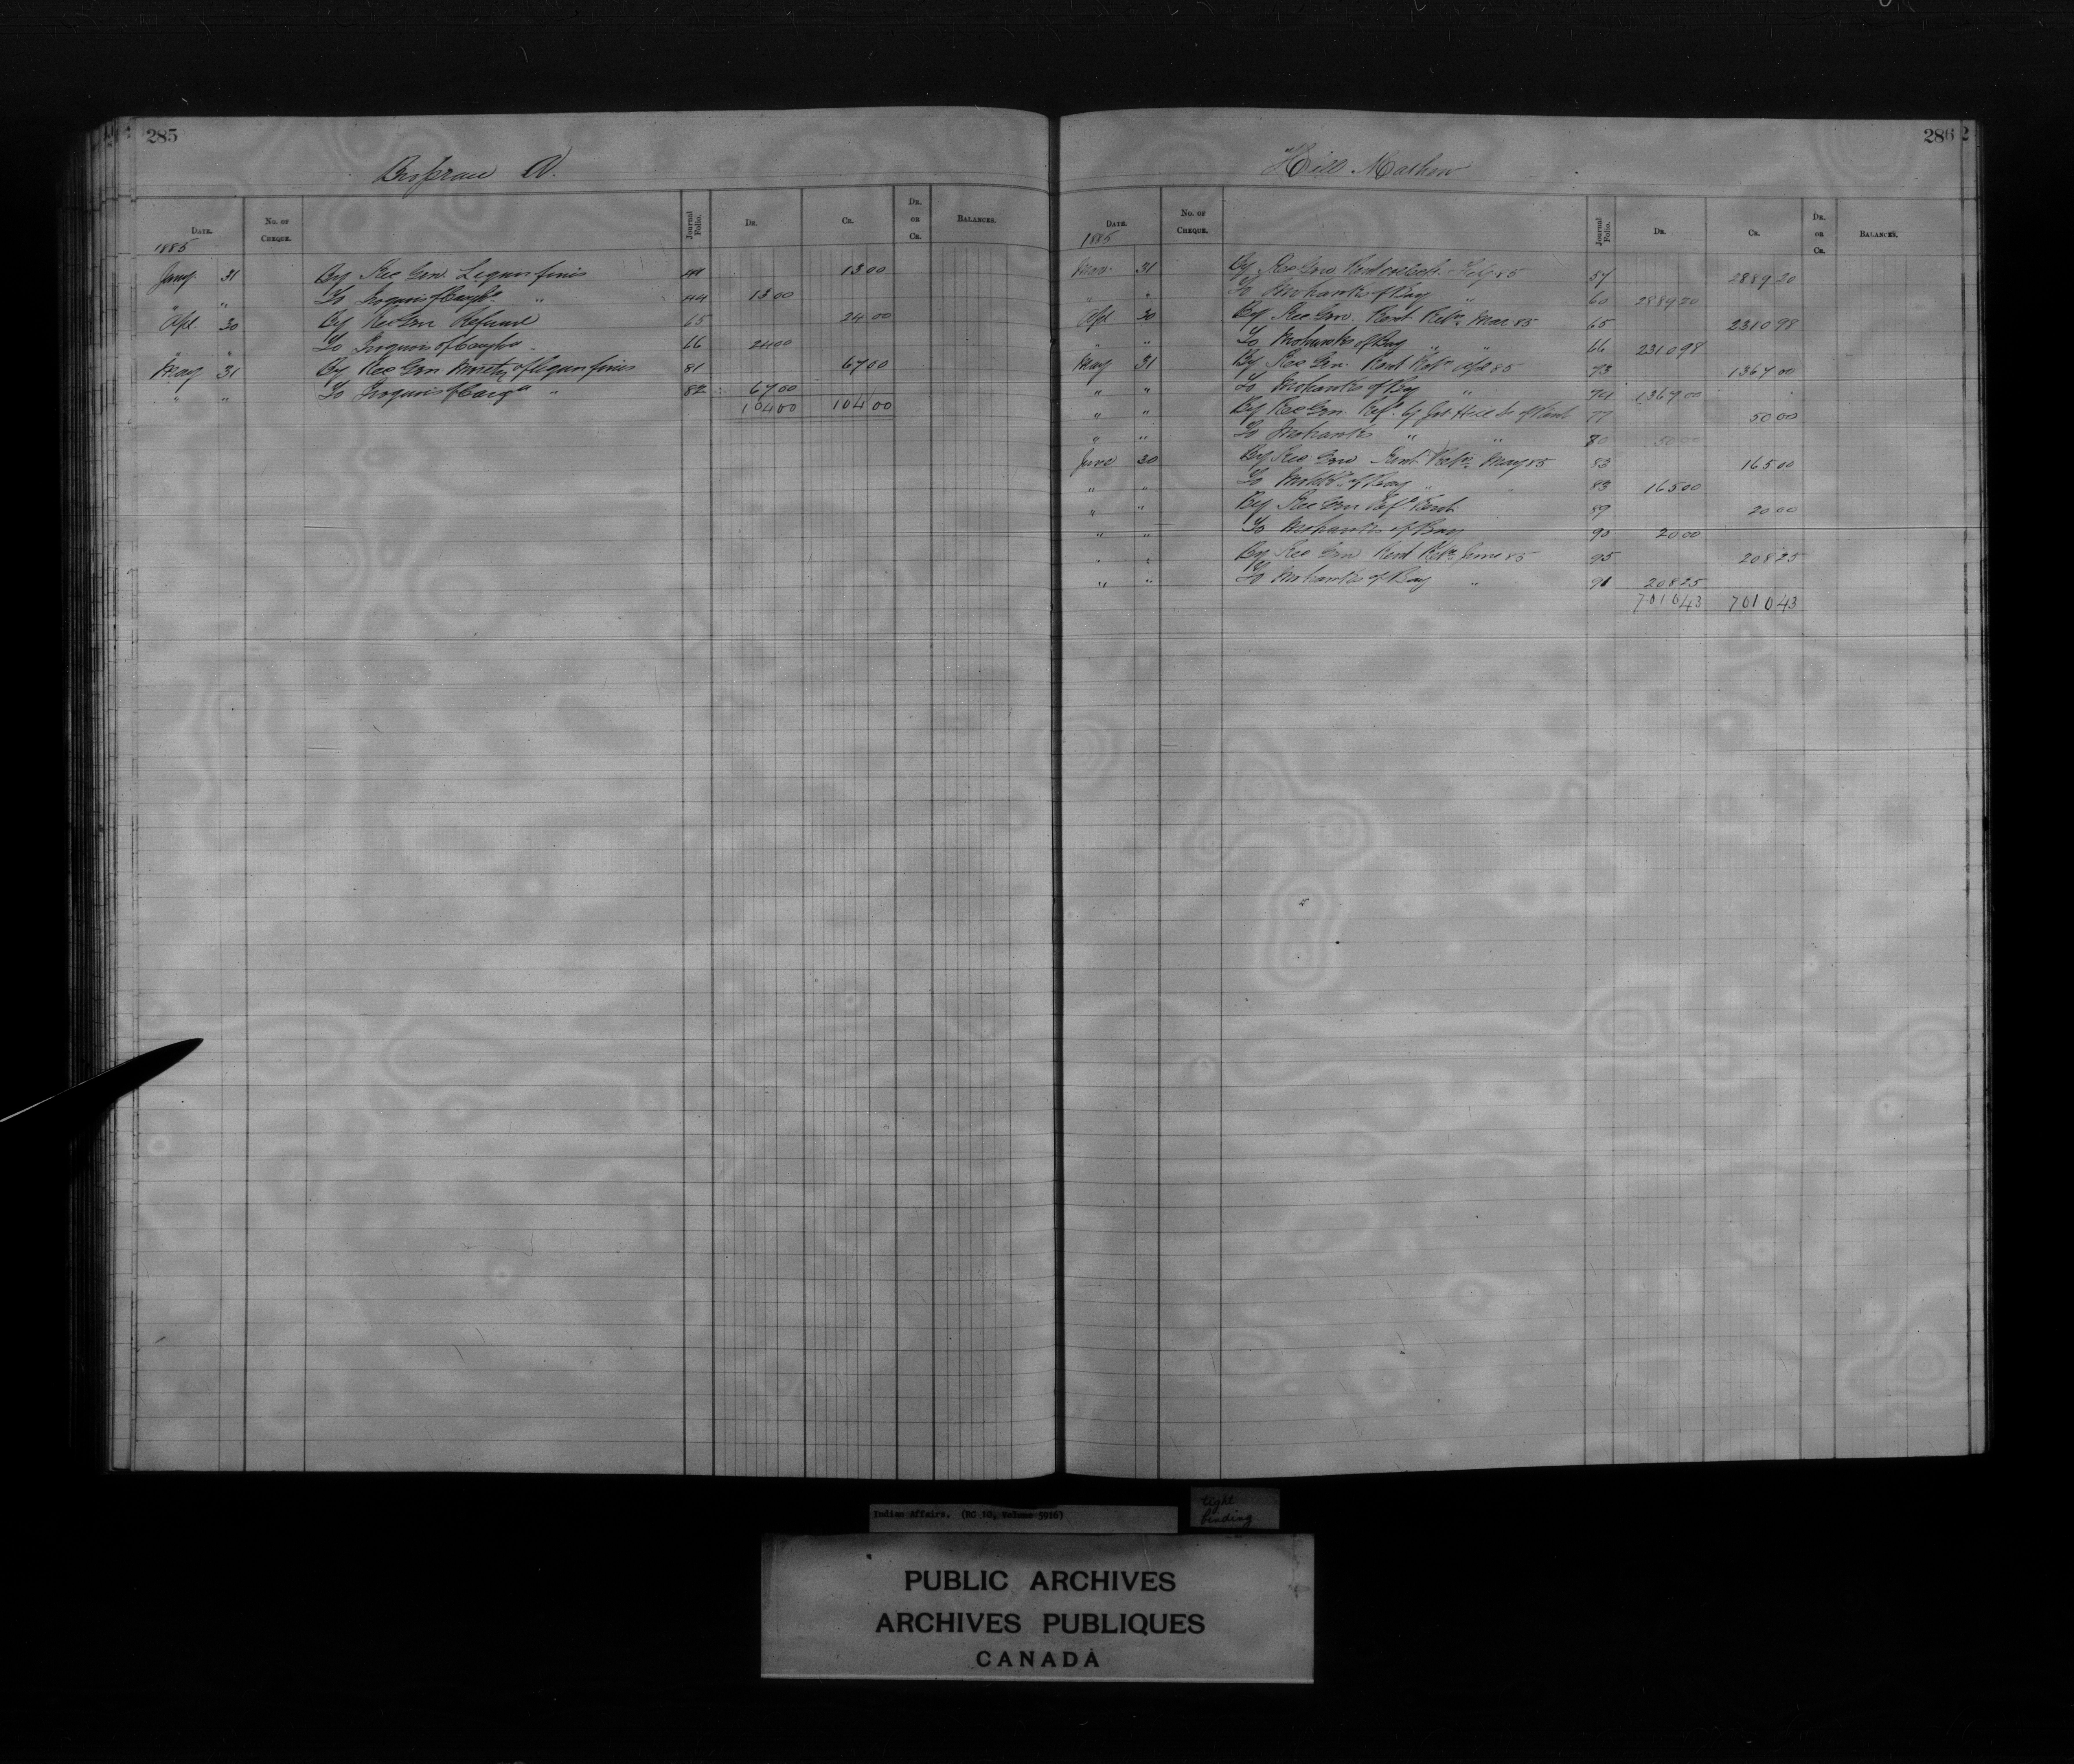 285
Brosseau A.
Date. No. of Cheque. Journal Folio. Dr. Cr. Dr. or Cr. Balances.
1885
Jany 31 By Rec Gen. Liquor fines 44 13 00
" " To Iroquois of Caughn " 44 13 00
Apl. 30 By Rec Gen Refund 65 24 00
" " To Iroquois of Caughn " 66 24 00
May 31 By Rec Gen Moiety of liquor fines 81 67 00
" " To Iroquois of Caugn " 82 67 00
104 00 104 00
286
Hill Mathew
Date. No. of Cheque. Journal Folio. Dr. Cr. Dr. or Cr. Balances.
1885
Mar. 31 By Rec Gen. Rent collect. Feby 85 57 2889 20
" " To Mohawks of Bay " 60 2889 20
Apl 30 By Rec Gen. Rent Retn Mar 85 65 2310 98
" " To Mohawks of Bay " " 66 2310 98
May 31 By Rec Gen. Rent Retn Apl 85 73 1367 00
" " To Mohawks of Bay " 74 1367 00
" " By Rec Gen. Refd by Hill of Rent 77 50 00
" " To Mohawks " " 80 50 00
June 30 By Rec Gen Rent Retn May 85 83 165 00
" " To Mohks of Bay " " 83 165 00
" " By Rec Gen Refd Rent 89 20 00
" " To Mohawks of Bay 90 20 00
" " By Rec Gen Rent Retn June 85 95 208 25
" " To Mohawks of Bay " 91 208 25
7010 43 7010 43
Indian Affairs. (RG 10, Volume 5916)
tight
binding
PUBLIC ARCHIVES
ARCHIVES PUBLIQUES
CANADA